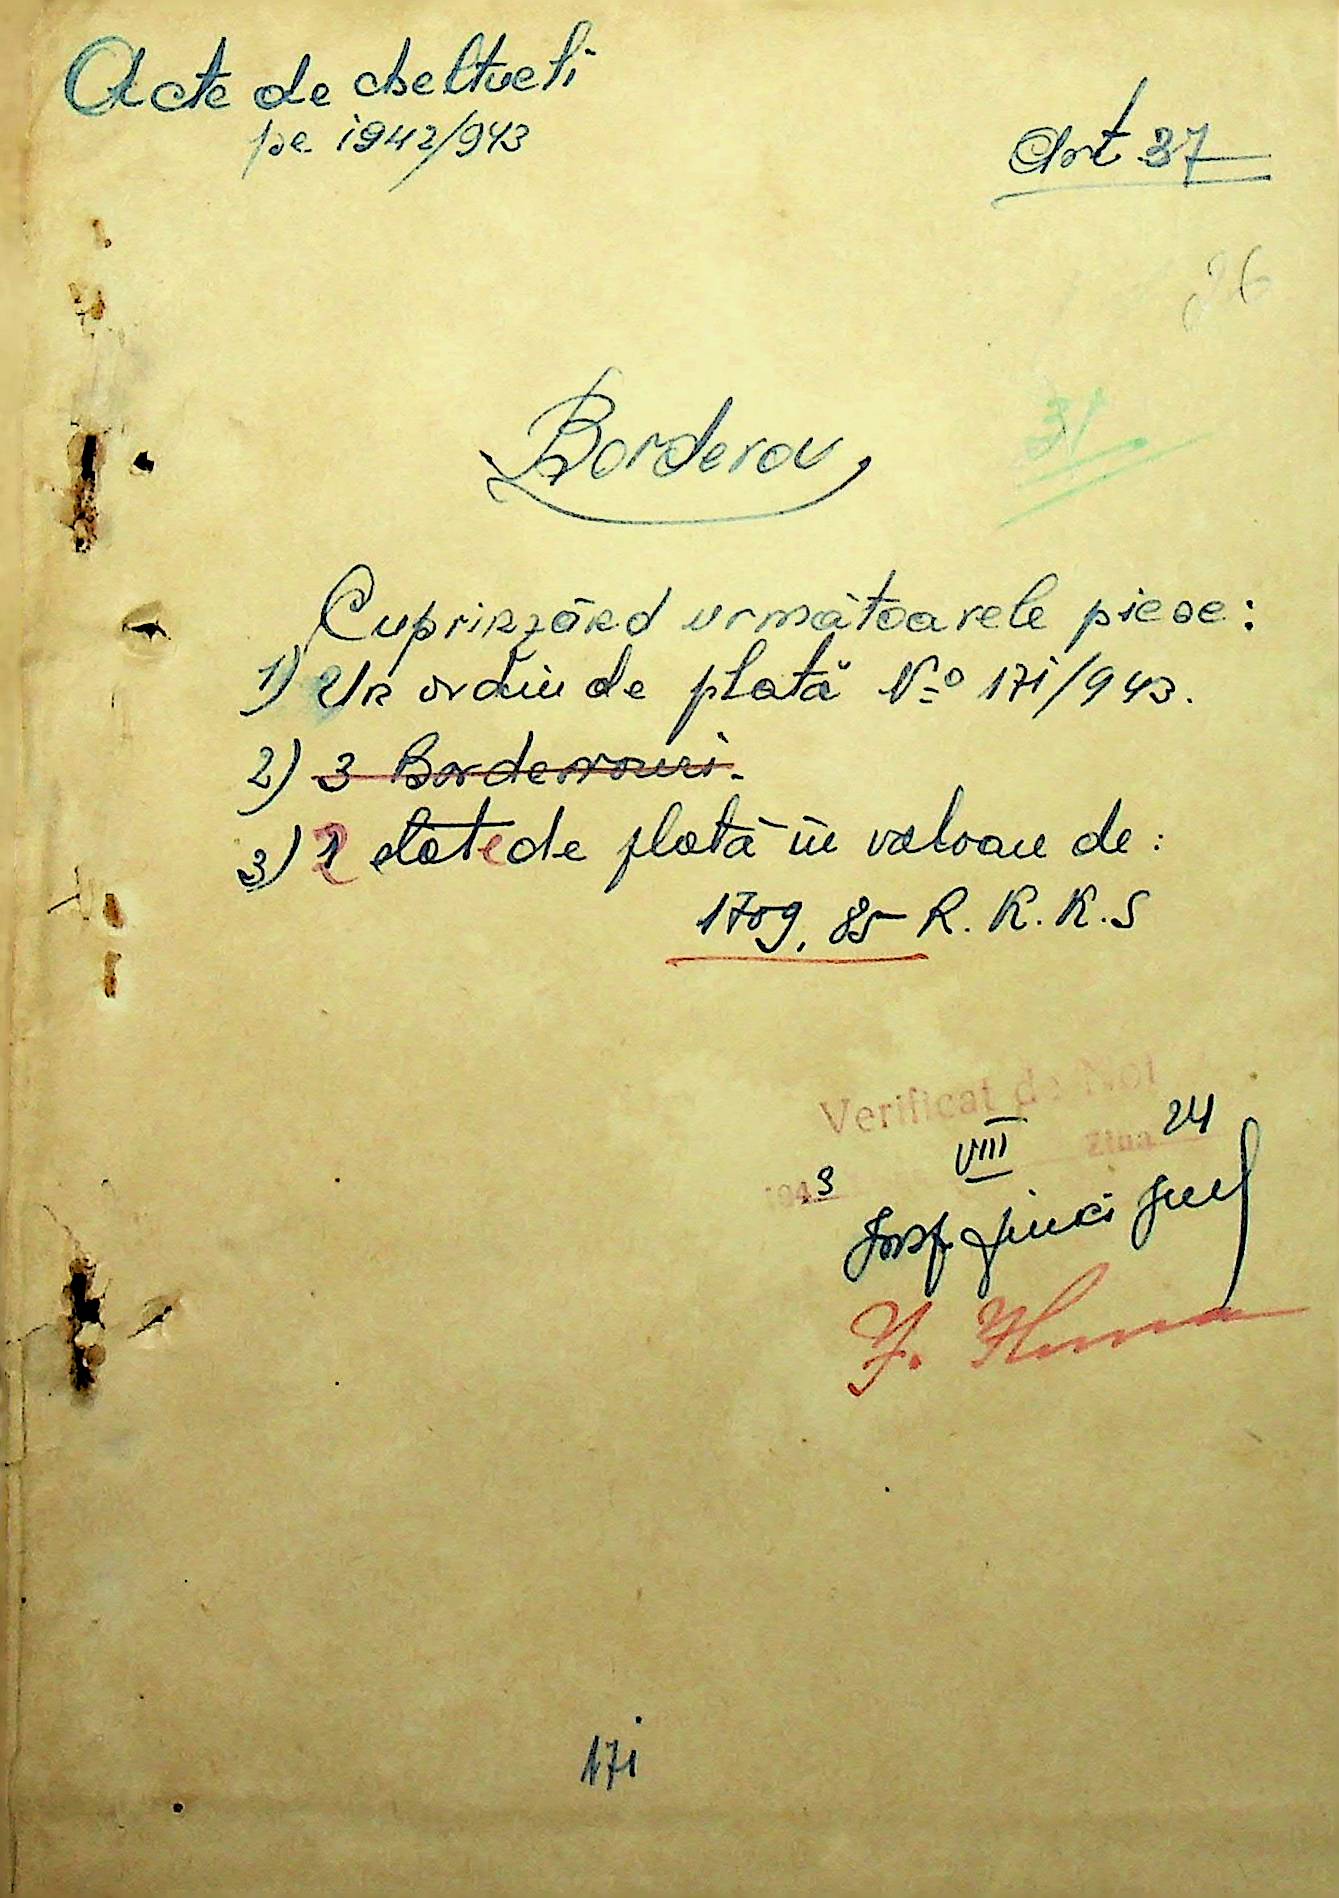 Acte de cheltueli
pe 1942/943
Art 37
26
31
Borderou
Cuprinzând următoarele piese:
1) Un ordin de plată No 171/943.
2) 3 Borderouri.
3) 2 state de plată în valoare de:
1709,85 R.K.K.S
Verificat de Noi
1943 VIII Ziua 24
171